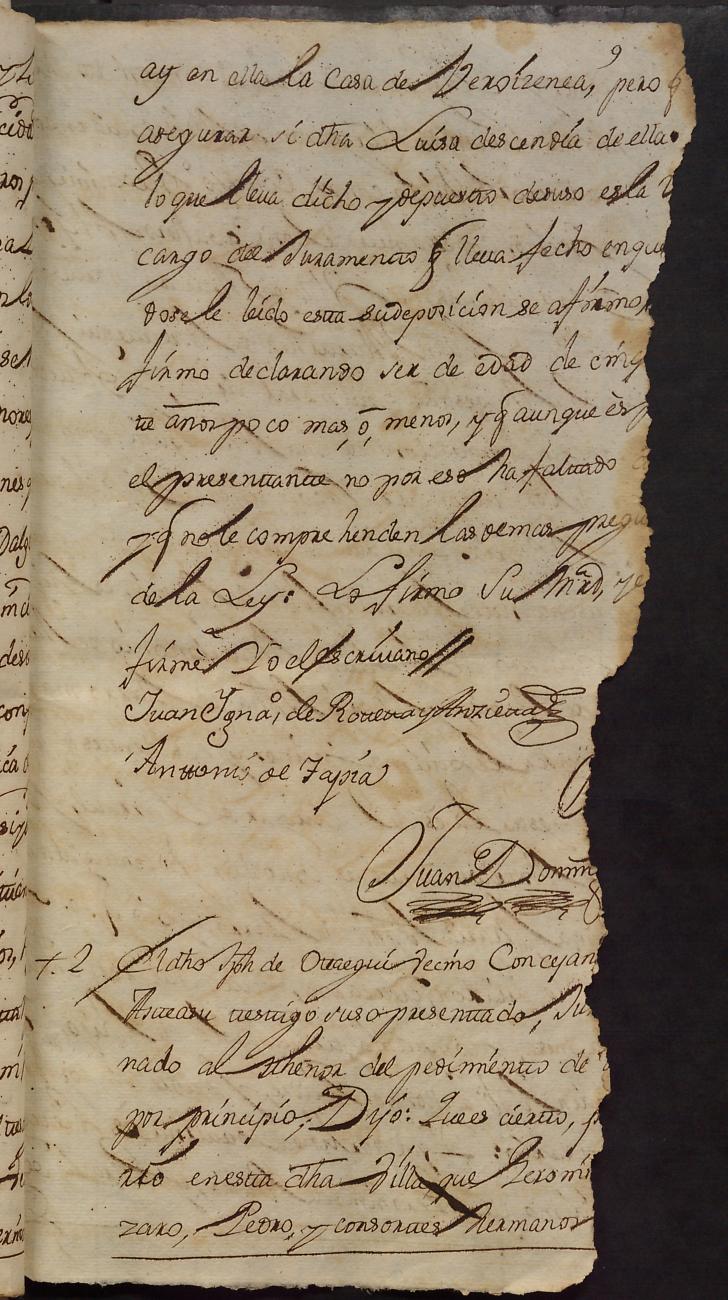 9
ay en ella la Casa de Veroizenea, pero q
asegurar si dha Luisa descendia de ella
lo que lleva dicho y depuesto desuso es la V
cargo del Juramento q lleva fecho en que
dosele leido esta su deposicion se afirmo,
firmo declarando ser de edad de cinq
te años poco mas, ó, menos, y q aunque es p
el presentante no por eso ha faltado
y q no le comprehenden las demas pregu
de la Ley: Lo firmo Su Mrd, y e
firmè Yo el escrivano
Juan Ygnaº, de Roteta y Anzieta
Antonio de Tapia
Juan Domin
+. 2 El dho Jph de Otaegui Vecino Concejan
Asteasu testigo suso presentado, Ju
nado al thenor del pedimento de
por principio, Dijo: Que es cierto, p
rio en esta dha Villa, que Geromi
zaro, Pedro, y consortes hermanos